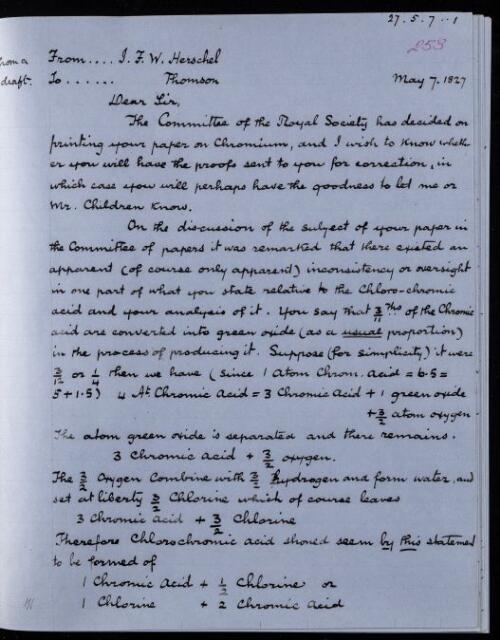 27.5.7..1
253
From a From.... J. F. W. Herschel
draft. To...... Thomson May 7. 1827
Dear Sir,
The Committee of the Royal Society has decided on
printing your paper on Chromium, and I wish to know wheth-
er you will have the proofs sent to you for correction, in
which case you will perhaps have the goodness to let me or
Mr. Children know.
On the discussion of the subject of your paper in
the Committee of papers it was remarked that there existed an
apparent (of course only apparent) inconsistency or oversight
in one part of what you state relative to the Chloro-chromic
acid and your analysis of it. You say that 3/11 ths of the Chromic
acid are converted into green oxide (as a usual proportion)
in the process of producing it. Suppose (for simplicity) it were
3/12 or 1/4 then we have (since 1 Atom Chrom. acid = 6.5 =
5 + 1.5) 4 At. Chromic Acid = 3 Chromic Acid + 1 green oxide
+ 3/2 atom oxygen
The atom green oxide is separated and there remains.
3 Chromic acid + 3/2 oxygen.
The 3/2 Oxygen combine with 3/2 hydrogen and form water, and
set at liberty 3/2 Chlorine which of course leaves
3 Chromic acid + 3/2 Chlorine
Therefore Chlorochromic acid should seem by this statement
to be formed of
1 Chromic Acid + 1/2 Chlorine or
1 Chlorine + 2 Chromic Acid